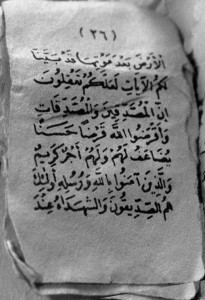 (٢٦)
الْأَرْضَ بَعْدَ مَوْتِهَا قَدْ بَيَّنَّا
لَكُمُ الْآيَاتِ لَعَلَّكُمْ تَعْقِلُونَ
إِنَّ الْمُصَّدِّقِينَ وَالْمُصَّدِّقَاتِ
وَأَقْرَضُوا اللَّهَ قَرْضًا حَسَنًا
يُضَاعَفُ لَهُمْ وَلَهُمْ أَجْرٌ كَرِيمٌ
وَالَّذِينَ آمَنُوا بِاللَّهِ وَرُسُلِهِ أُولَٰئِكَ
هُمُ الصِّدِّيقُونَ وَالشُّهَدَاءُ عِنْدَ